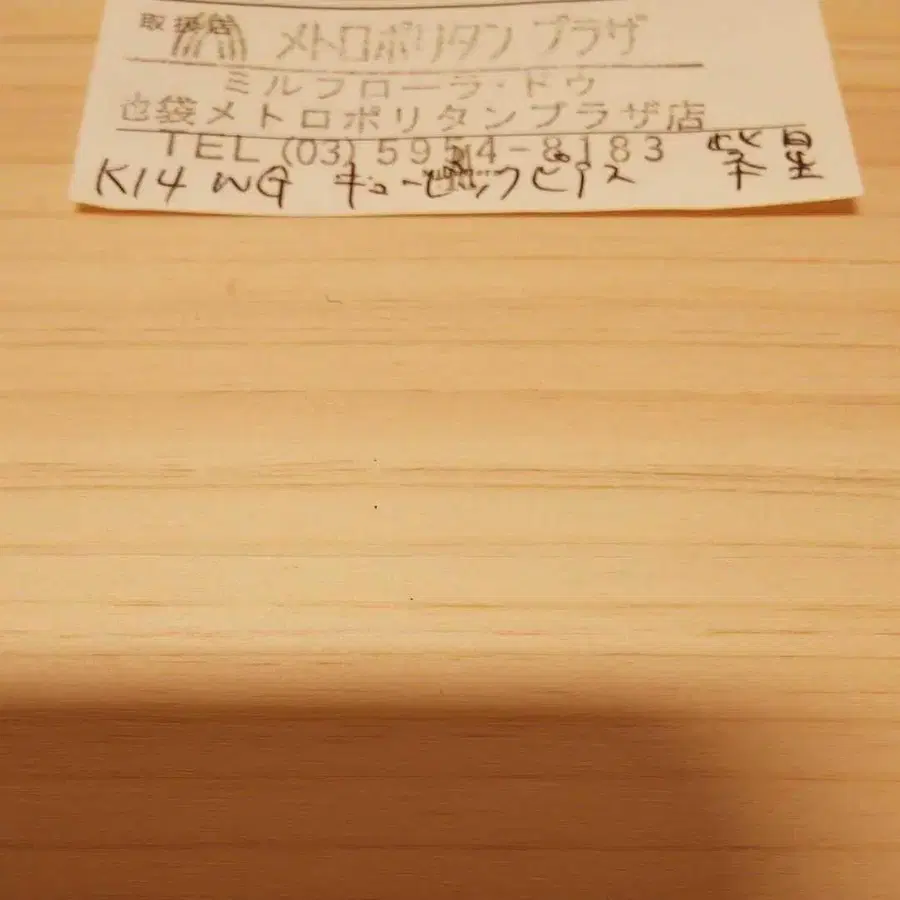 取扱店 メトロポリタン プラザ
ミルフローラ・ドゥ
池袋メトロポリタンプラザ店
TEL (03) 5954-8183
K14 WG キュービックピアス 紫星